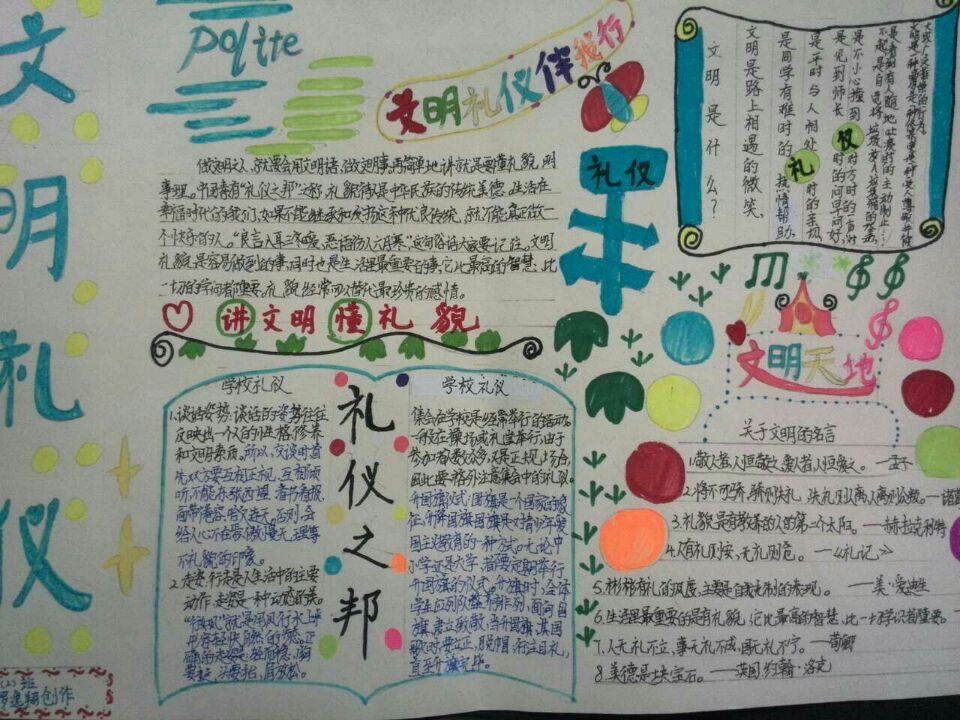 文明礼仪
polite
文明礼仪伴我行
做文明之人,就要会用文明语,做文明事,再简单地讲就是要懂礼貌,明
事理。中国素有“礼仪之邦”之称,礼貌待人是中华民族的传统美德。生活在
幸福时代的我们,如果不能继承和发扬这种优良传统,就不能真正做一
个快乐的人。“良言入耳三冬暖,恶语伤人六月寒”这句俗语大家要记住。文明
礼貌是容易做到的事,同时也是生活里最重要的事,它比最高的智慧,比
一切的学问都重要。礼貌经常可以替代最珍贵的感情。
讲文明懂礼貌
礼仪
文明是什么?
文明是路上相遇的微笑、
是同学有难时的热情帮助、
是平时与人相处时的亲切、
是见到师长时的问早问好、
是不小心撞到对方时的一声对
不起、是自觉将垃圾放入垃圾箱的举动、
是看到有人随地吐痰时的主动制止……
礼
仪
文明天地
关于文明的名言
1.敬人者,人恒敬之;爱人者,人恒爱之。——孟子
2.将不可骄,骄则失礼,失礼则人离,人离则众叛。——诸葛
3.礼貌是有教养的人的第二个太阳。——赫拉克利特
4.人有礼则安,无礼则危。——《礼记》
5.彬彬有礼的风度,主要是自我克制的表现。——美·爱迪生
6.生活里最重要的是有礼貌,它比最高的智慧,比一切学识都重要。
7.人无礼不立,事无礼不成,国无礼不宁。——荀卿
8.美德是块宝石。——英国·约翰·洛克
学校礼仪
1.谈话姿势:谈话的姿势往往
反映出一个人的性格、修养
和文明素质。所以,交谈时,首
先双方要互相正视、互相倾
听、不能东张西望、看书看报、
面带倦容、哈欠连天。否则,会
给人心不在焉、傲慢无理等
不礼貌的印象。
2.走姿:行走是人生活中的主要
动作,走姿是一种动态的美。
“行如风”就是用风行水上来
形容轻快自然的步态。正
确的走姿是:轻而稳,胸
要挺,头要抬,肩放松。
礼仪之邦
学校礼仪
集会在学校是经常举行的活动。
一般在操场或礼堂举行,由于
参加者人数众多,又是正规场合,
因此要格外注意集会中的礼仪。
升国旗仪式:国旗是一个国家的象
征,升降国旗是对青少年爱
国主义教育的一种方式。无论中
小学还是大学,都要定期举行
升国旗的仪式。升旗时,全体
学生应列队整齐排列,面向国
旗,肃立致敬。当升国旗、奏国
歌时,要立正,脱帽,行注目礼,
直至升旗完毕。
(2)班